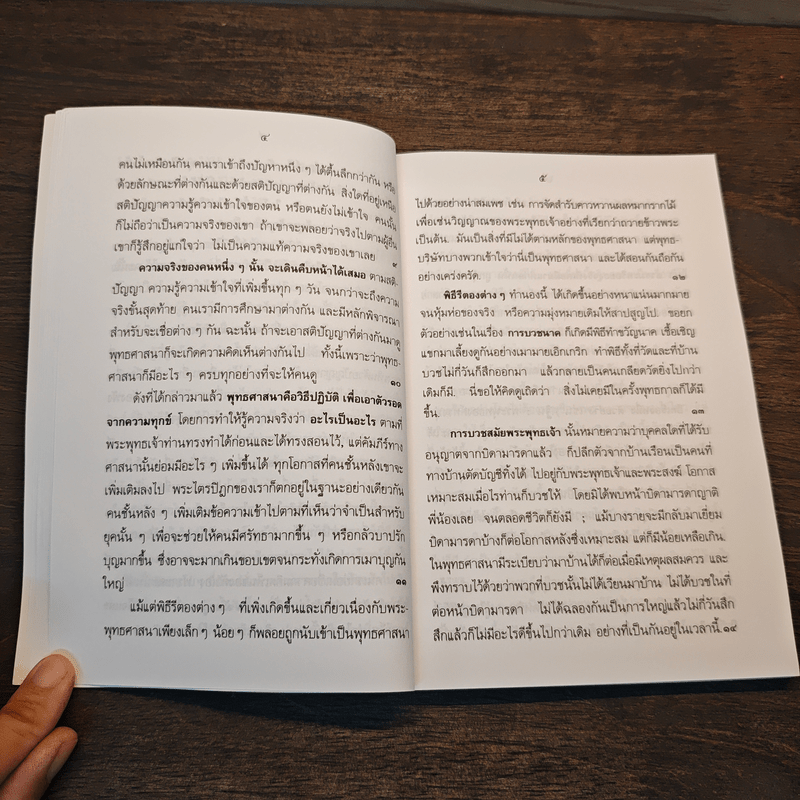 ๔
คนไม่เหมือนกัน คนเราเข้าถึงปัญหาหนึ่ง ๆ ได้ตื้นลึกกว่ากัน หรือ
ด้วยลักษณะที่ต่างกันและด้วยสติปัญญาที่ต่างกัน สิ่งใดที่อยู่เหนือ
สติปัญญาความรู้ความเข้าใจของตน หรือตนยังไม่เข้าใจ คนนั้น
ก็ไม่ถือว่าเป็นความจริงของเขา ถ้าเขาจะพลอยว่าจริงไปตามผู้อื่น
เขาก็รู้สึกอยู่แก่ใจว่า ไม่เป็นความแท้ความจริงของเขาเลย ๙
ความจริงของคนหนึ่ง ๆ นั้น จะเดินคืบหน้าได้เสมอ ตามสติ-
ปัญญา ความรู้ความเข้าใจที่เพิ่มขึ้นทุก ๆ วัน จนกว่าจะถึงความ
จริงขั้นสุดท้าย คนเรามีการศึกษามาต่างกัน และมีหลักพิจารณา
สำหรับจะเชื่อต่าง ๆ กัน ฉะนั้น ถ้าจะเอาสติปัญญาที่ต่างกันมาดู
พุทธศาสนาก็จะเกิดความคิดเห็นต่างกันไป ทั้งนี้เพราะว่าพุทธ-
ศาสนาก็มีอะไร ๆ ครบทุกอย่างที่จะให้คนดู ๑๐
ดังที่ได้กล่าวมาแล้ว พุทธศาสนาคือวิธีปฏิบัติ เพื่อเอาตัวรอด
จากความทุกข์ โดยการทำให้รู้ความจริงว่า อะไรเป็นอะไร ตามที่
พระพุทธเจ้าท่านทรงทำได้ก่อนและได้ทรงสอนไว้, แต่คัมภีร์ทาง
ศาสนานั้นย่อมมีอะไร ๆ เพิ่มขึ้นได้ ทุกโอกาสที่คนชั้นหลังเขาจะ
เพิ่มเติมลงไป พระไตรปิฎกของเราก็ตกอยู่ในฐานะอย่างเดียวกัน
คนชั้นหลัง ๆ เพิ่มเติมข้อความเข้าไปตามที่เห็นว่าจำเป็นสำหรับ
ยุคนั้น ๆ เพื่อจะช่วยให้คนมีศรัทธามากขึ้น ๆ หรือกลัวบาปรัก
บุญมากขึ้น ซึ่งอาจจะมากเกินขอบเขตจนกระทั่งเกิดการเมาบุญกัน
ใหญ่ ๑๑
แม้แต่พิธีรีตองต่าง ๆ ที่เพิ่งเกิดขึ้นและเกี่ยวเนื่องกับพระ-
พุทธศาสนาเพียงเล็ก ๆ น้อย ๆ ก็พลอยถูกนับเข้าเป็นพุทธศาสนา
๕
ไปด้วยอย่างน่าสมเพช เช่น การจัดสำรับคาวหวานผลหมากรากไม้
เพื่อเซ่นวิญญาณของพระพุทธเจ้าอย่างที่เรียกว่าถวายข้าวพระ
เป็นต้น. มันเป็นสิ่งที่มีไม่ได้ตามหลักของพุทธศาสนา แต่พุทธ-
บริษัทบางพวกเข้าใจว่านี่เป็นพุทธศาสนา และได้สอนกันถือกัน
อย่างเคร่งครัด. ๑๒
พิธีรีตองต่าง ๆ ทำนองนี้ ได้เกิดขึ้นอย่างหนาแน่นมากมาย
จนหุ้มห่อของจริง หรือความมุ่งหมายเดิมให้สาปสูญไป. ขอยก
ตัวอย่างเช่นในเรื่อง การบวชนาค ก็เกิดมีพิธีทำขวัญนาค เชื้อเชิญ
แขกมาเลี้ยงดูกันอย่างเมามายเอิกเกริก ทำพิธีทั้งที่วัดและที่บ้าน
บวชไม่กี่วันก็สึกออกมา แล้วกลายเป็นคนเกลียดวัดยิ่งไปกว่า
เดิมก็มี. นี่ขอให้คิดดูเถิดว่า สิ่งไม่เคยมีในครั้งพุทธกาลก็ได้มี
ขึ้น. ๑๓
การบวชสมัยพระพุทธเจ้า นั้นหมายความว่าบุคคลใดที่ได้รับ
อนุญาตจากบิดามารดาแล้ว ก็ปลีกตัวจากบ้านเรือนเป็นคนที่
ทางบ้านตัดบัญชีทิ้งได้ ไปอยู่กับพระพุทธเจ้าและพระสงฆ์ โอกาส
เหมาะสมเมื่อไรท่านก็บวชให้ โดยมิได้พบหน้าบิดามารดาญาติ
พี่น้องเลย จนตลอดชีวิตก็ยังมี ; แม้บางรายจะมีกลับมาเยี่ยม
บิดามารดาบ้างก็ต่อโอกาสหลังซึ่งเหมาะสม แต่ก็มีน้อยเหลือเกิน.
ในพุทธศาสนามีระเบียบว่ามาบ้านได้ก็ต่อเมื่อมีเหตุผลสมควร และ
พึงทราบไว้ด้วยว่าพวกที่บวชนั้นไม่ได้เวียนมาบ้าน ไม่ได้บวชในที่
ต่อหน้าบิดามารดา ไม่ได้ฉลองกันเป็นการใหญ่แล้วไม่กี่วันสึก
สึกแล้วก็ไม่มีอะไรดีขึ้นไปกว่าเดิม อย่างที่เป็นกันอยู่ในเวลานี้. ๑๔